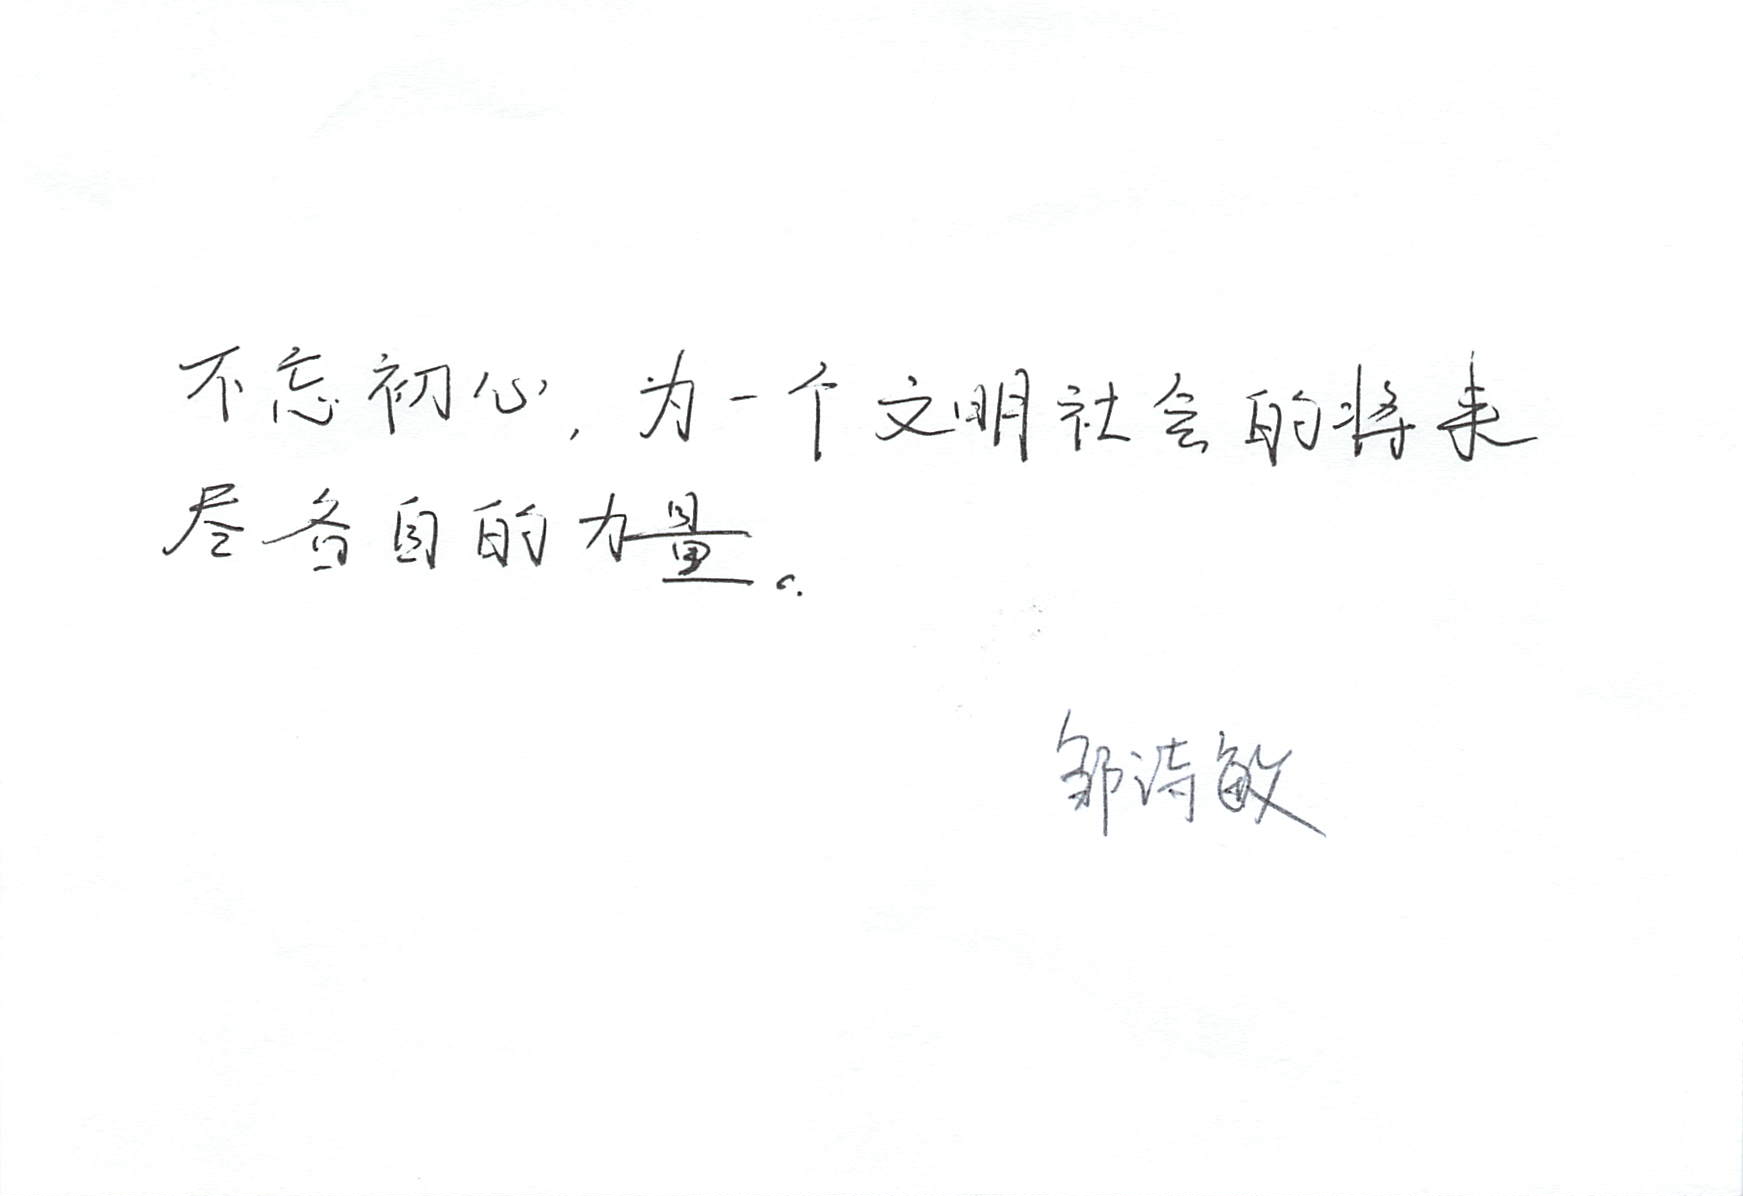 不忘初心,为一个文明社会的将来
尽各自的力量。
邹诗敏